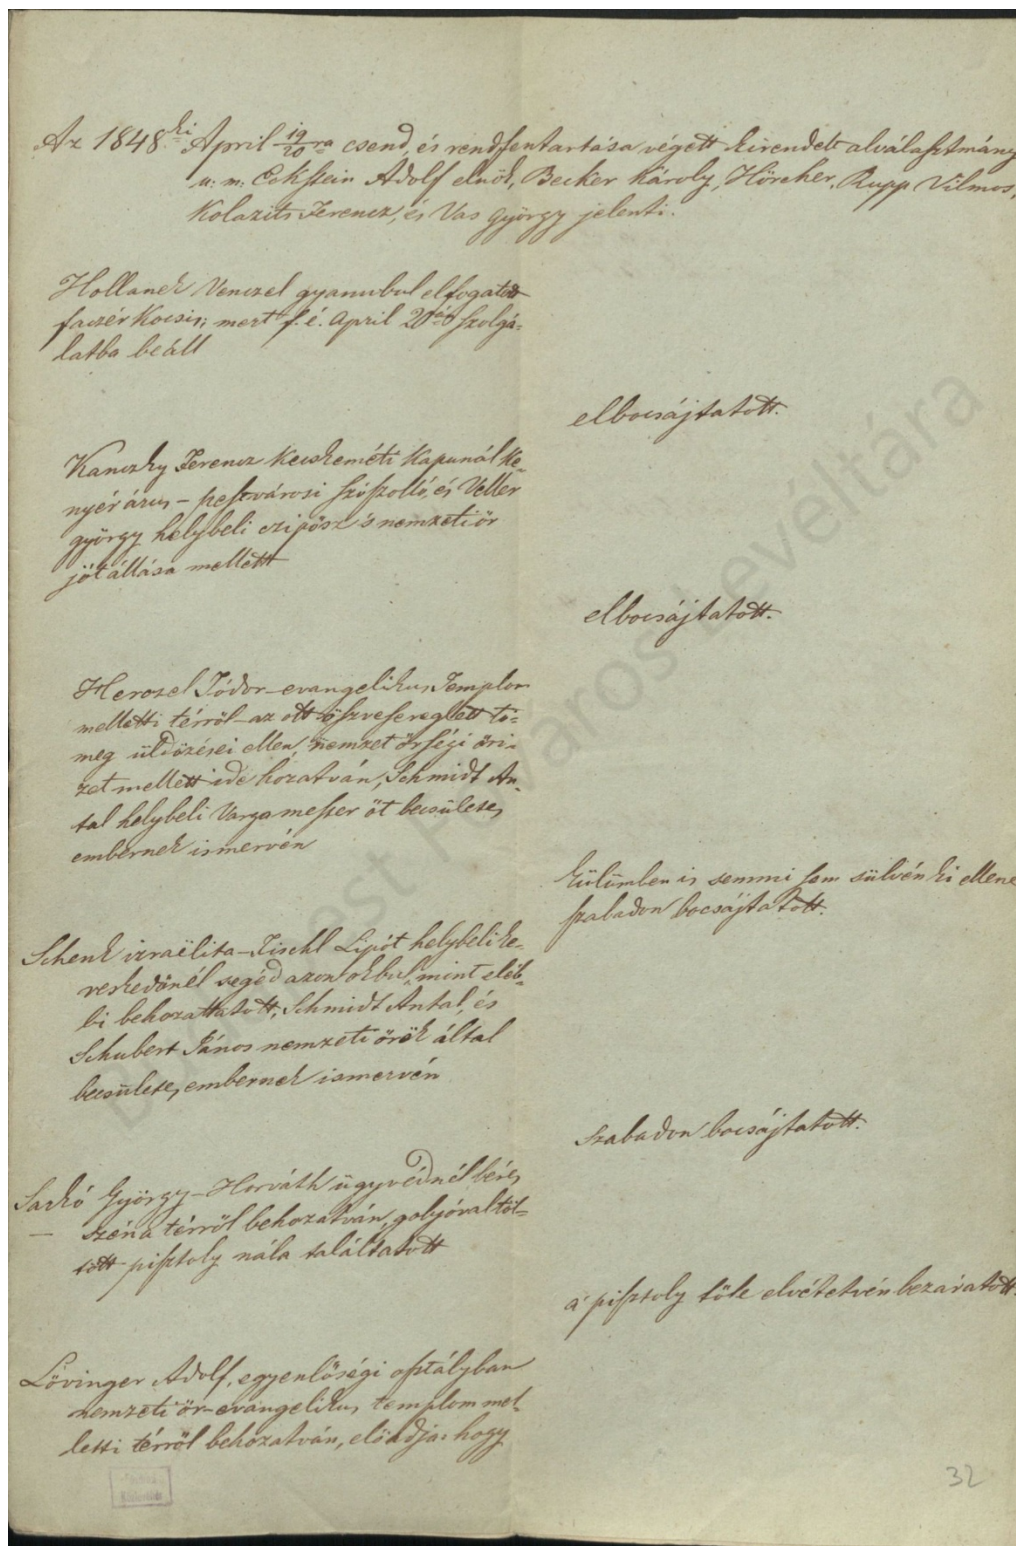 Az 1848ki April 19/20ra csend, és rendfentartása végett kirendelt alválasztmány
u: m: Eckstein Adolf elnök, Becker Károly, Hörcher, Rupp Vilmos,
Kolazits Ferencz, és Vas György jelenti.
Hollanek Venczel gyanubul elfogatott
faczér kocsis; mert f. é. April 20án szolgá-
latba beáll
elbocsájtatott.
Kanczky Ferencz Kecskeméti kapunál ke-
nyér árus – pestvárosi szószolló, és Veller
györgy helybeli czipősz 's nemzeti őr
jótállása mellett
elbocsájtatott.
Herosel Tódor – evangelikus Templom
melletti térről – az ott öszvesereglett tö-
meg üldözései ellen, nemzet őrségi őri-
zet mellett ide hozatván, Schmidt An-
tal helybeli Varga mester őt becsületes
embernek ismervén
külümben is semmi sem sülvén ki ellene
szabadon bocsájtatott.
Schenk izraëlita – Fischl Lipót helybeli ke-
reskedőnél segéd azon okbul, mint eléb-
bi behozattatott, Schmidt Antal, és
Schubert János nemzeti őrök által
becsületes embernek ismervén
szabadon bocsájtatott.
Sarkó György – Horváth ügyvédnél béres
széna térről behozatván, golyóval töl-
tött pisztoly nála találtatott
a' pisztoly tőle elvétetvén bezáratott.
Lövinger Adolf, egyenlőségi osztályban
nemzeti őr – evangelikus templom mel-
letti térről behozatván, előadja: hogy
32
Budapest Főváros Levéltára